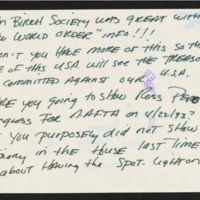 N BIRCH SOCIETY WAS GREAT WITH
WORLD ORDER" INFO!!!
N'T YOU HAVE MORE OF THIS SO TH
E OF THIS USA WILL SEE THE TREASO
COMMITTED AGAINST OUR U.S.A.
RE YOU GOING TO SHOW ROSS PE
NGRESS FOR NAFTA ON 4/22/93?
YOU PURPOSELY DID NOT SHOW
IN THE HOUSE LAST TIME
ABOUT HAVING THE SPOT-LIGHT ON